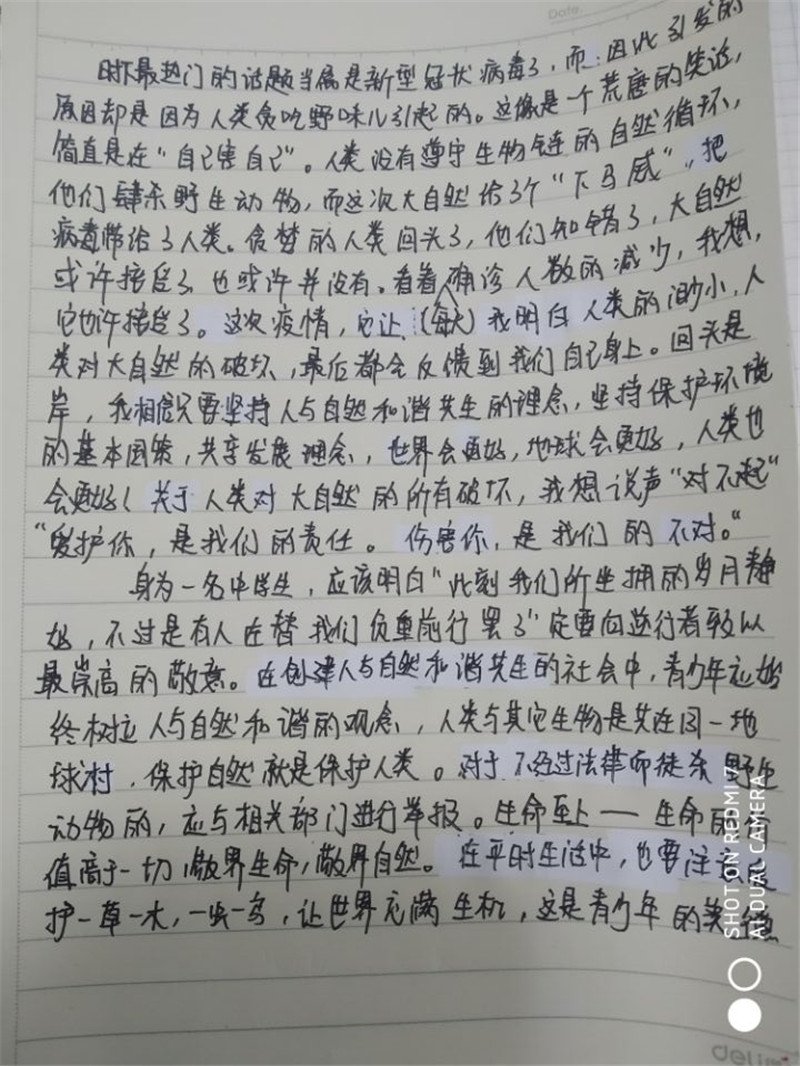 Date.
时下最热门的话题当属是新型冠状病毒了,而因此引发的
原因却是因为人类贪吃野味儿引起的。这像是一个荒唐的笑话,
简直是在“自己害自己”。人类没有遵守生物链的自然循环,
他们肆杀野生动物,而这次大自然给了个“下马威”,把
病毒带给了人类。贪婪的人类回头了,他们知错了,大自然
或许接受了也或许并没有。看着确诊人数的减少,我想,
它也许接受了。这次疫情,它让(每天)我明白人类的渺小,人
类对大自然的破坏,最后都会反馈到我们自己身上。回头是
岸,我相信只要坚持人与自然和谐共生的理念,坚持保护环境
的基本国策,共享发展理念,世界会更好,地球会更好,人类也
会更好!关于人类对大自然的所有破坏,我想说声“对不起”
“爱护你,是我们的责任。伤害你,是我们的不对。“
身为一名中学生,应该明白“此刻我们所坐拥的岁月静
好,不过是有人在替我们负重前行罢了”定要向逆行者致以
最崇高的敬意。在创建人与自然和谐共生的社会中,青少年应始
终树立人与自然和谐的观念,人类与其它生物是共在同一地
球村,保护自然就是保护人类。对于不经过法律而徒杀野生
动物的,应与相关部门进行举报。生命至上——生命的价
值高于一切,敬畏生命,敬畏自然。在平时生活中,也要注意
护一草一木,一虫一鸟,让世界充满生机,这是青少年的
SHOT ON REDMI 7
AI DUAL CAMERA
deli